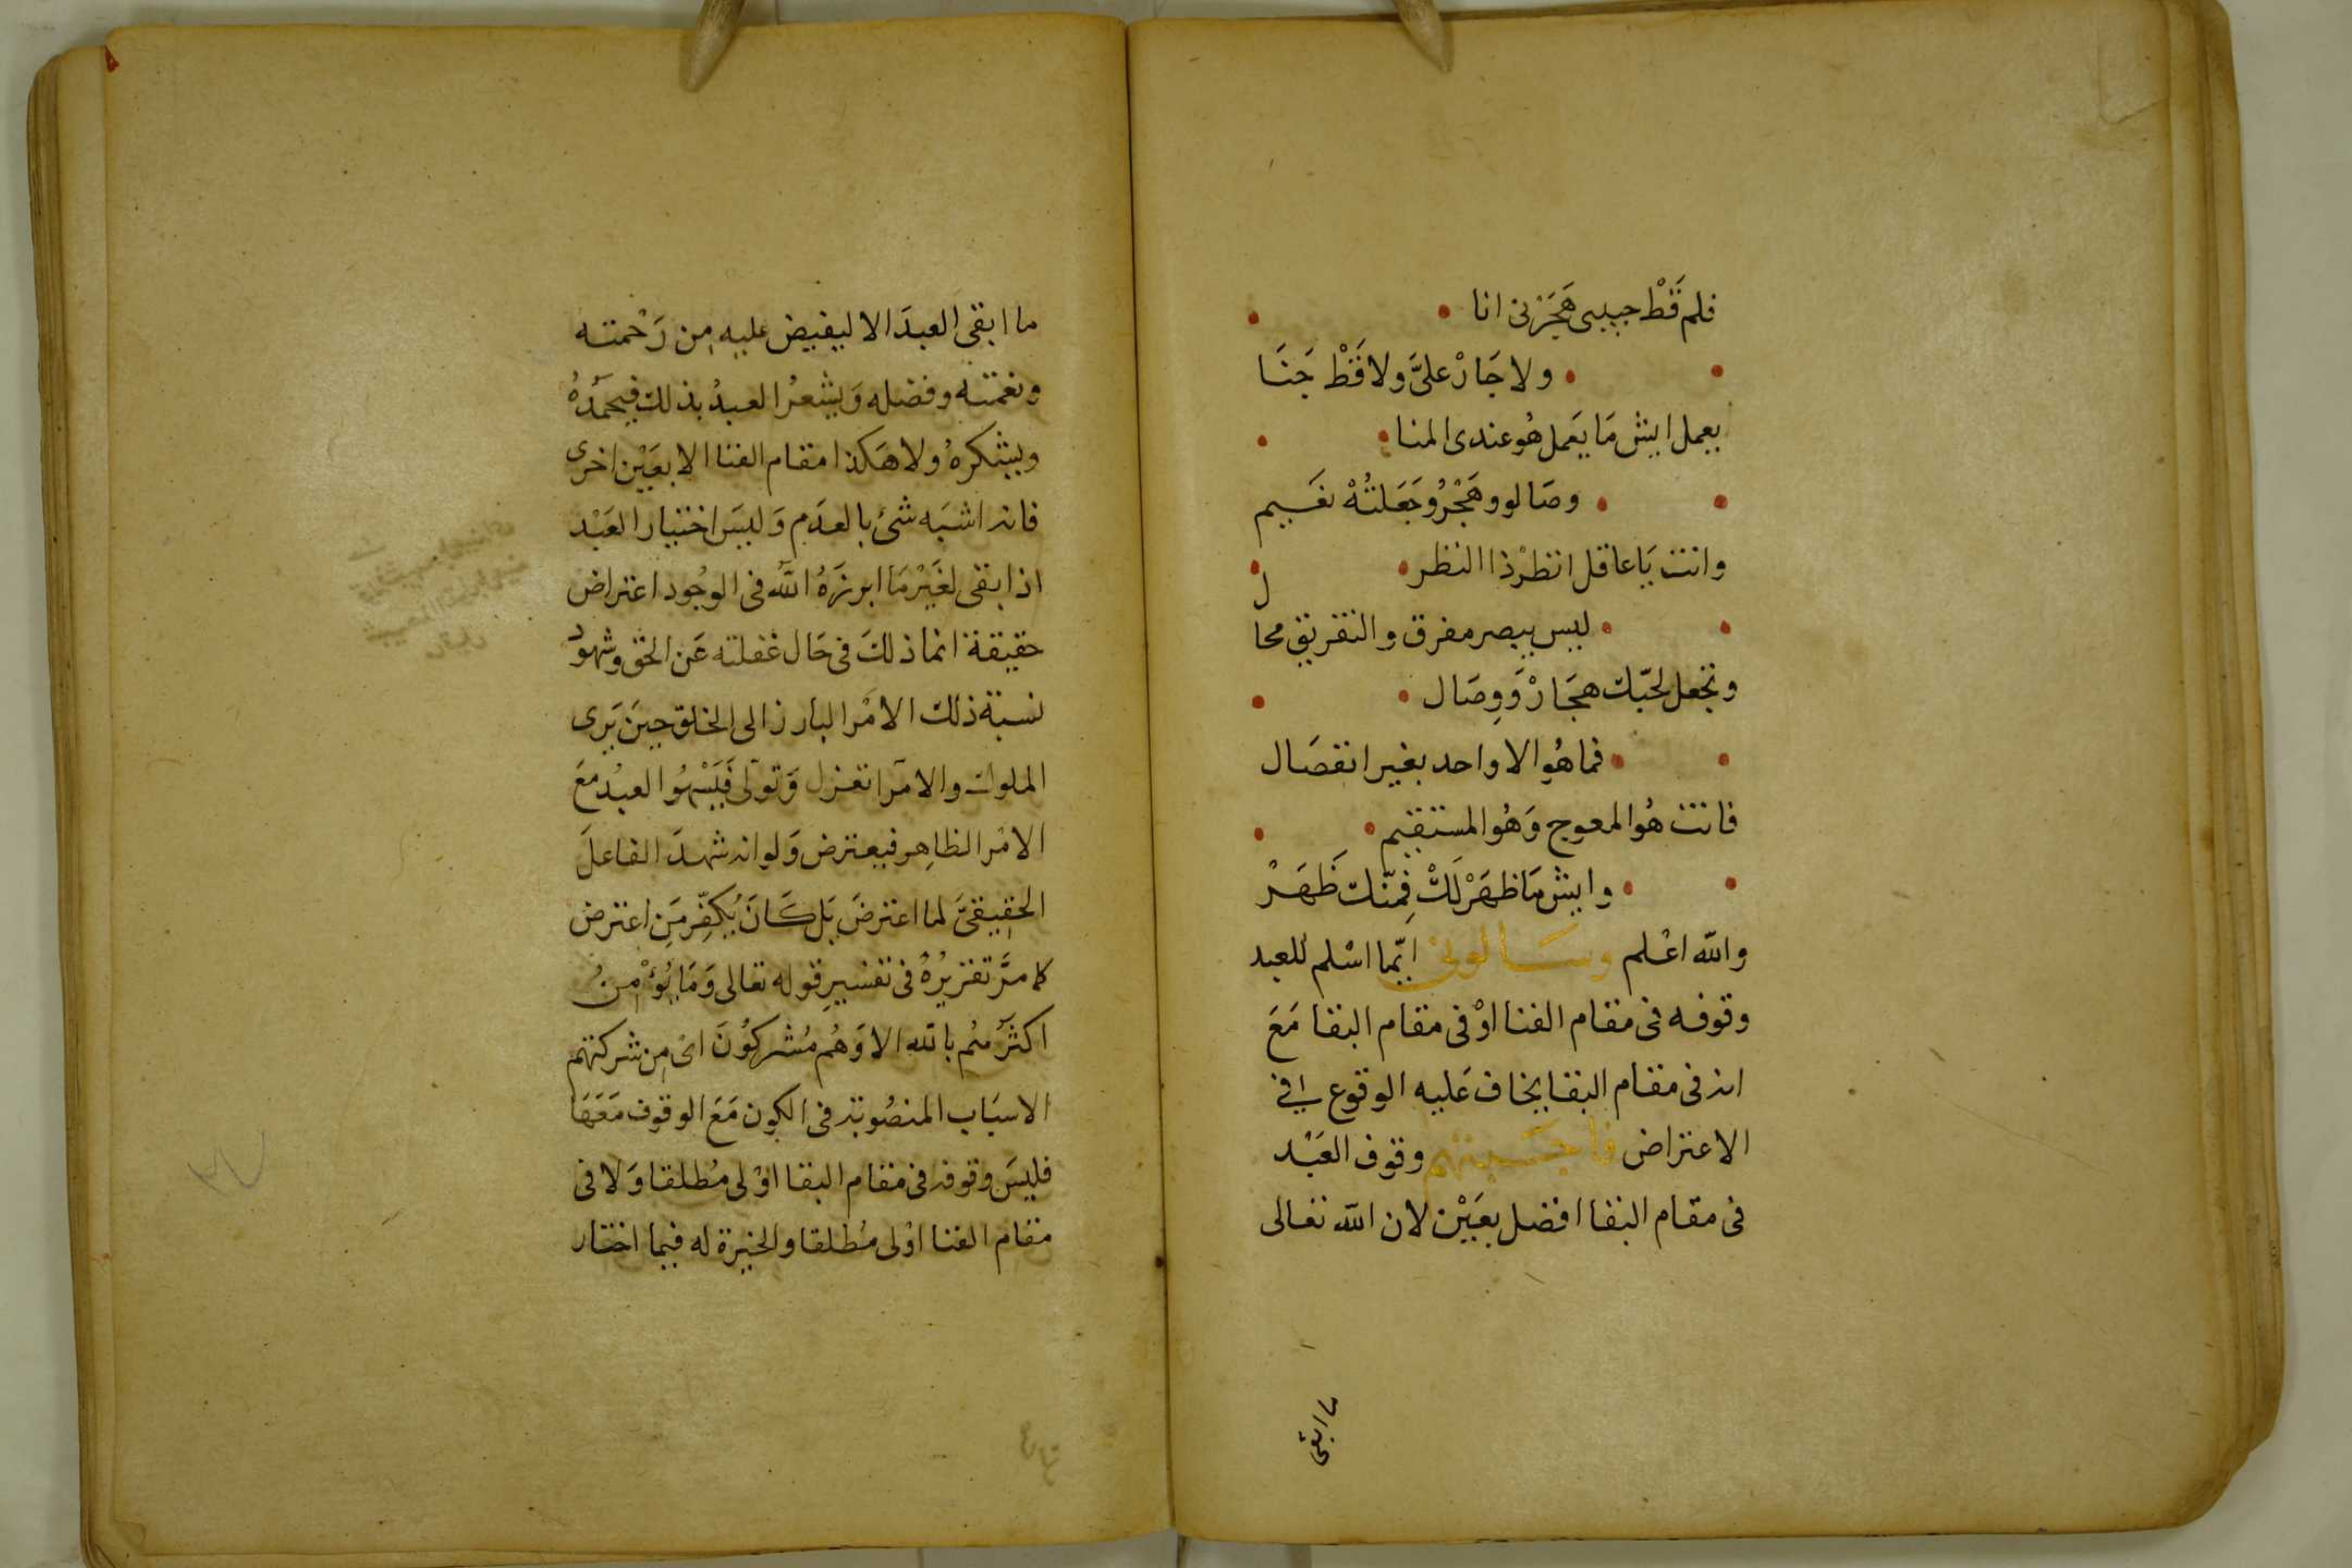 فلم قَطْ حبيبى هَجَرْنى انا
ولا جَارْ علىَّ ولا قَطْ جَنَا
يعمل ايش مَا يَعمل هُو عندى المنا
وصَالو وهَجْرُو جَعَلتُهْ نعَيم
وانت يَا عاقل انظرْ ذا النظر
ليس يبصر مفرق والتفريق محال
وتجعل لحبّك هجَارْ وَوِصَال
فما هُو الا واحد بغير انفصَال
فانت هُو المعوج وَهُو المستقيم
وايش مَا ظهَرْ لَكْ فِمنّك ظَهَرْ
والله اعْلم وسَالونى ايّما اسْلم للعبد
وقوفه فى مقام الفنا اوْ فى مقام البقا مَعَ
انه فى مقام البقا يخاف عَليه الوقوع فى
الاعتراض فاجَبتهم وقوف العَبْد
فى مقام البقا افضل بعَيْن لان الله تعالى
ما ابقى
ما ابقى العبدَ الا ليفيض عليه مِن رَحْمته
ونعمته وفضله وَيشعرُ العبدُ بذلك فيحمَدُهُ
ويشكرهُ ولا هَكذا مقام الفنا الا بعَيْن اخرى
فانه اشبَه شئ بالعدَم وَليسَ اختيار العَبْد
اذا بقى لغَيْر مَا ابرزَهُ اللّه فى الوجُود اعتراض
حقيقة انما ذلكَ فى حَال غفلته عَن الحق وشهود
نسبة ذلك الامْر البارز الى الخلق حينَ يَرى
الملوك والامرآ تعزل وَتولى فَيَسْهُو العبْد معَ
الامْر الظاهِر فيعترض وَلو انه شهدَ الفاعلَ
الحقيقىَّ لما اعترضَ بَل كَانَ يُكفّر مَنِ اعترض
كما مرَّ تقريرُهُ فى تفسيرِ قوله تعالى وَمَا يُؤْمنُ
اكثرُهُم بالله الا وَهُم مُشركُونَ اى مِن شركتهم
الاسبَاب المنصُوبَة فى الكون مَعَ الوقوف مَعَهَا
فليسَ وقوفه فى مقام البقا اوْلى مُطلقا وَلا فى
مقام الفنا اوْلى مُطلقا والخيرة له فيما اختار